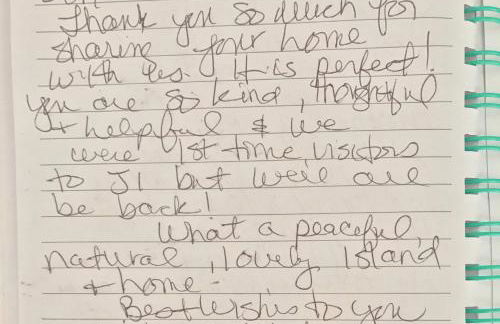 Thank you so much for
sharing your home
with us. It is perfect!
you are so kind, thoughtful
+ helpful & we
were 1st time visitors
to JI but were are
be back!
What a peaceful,
natural, lovely Island
+ home.
Best wishes to you